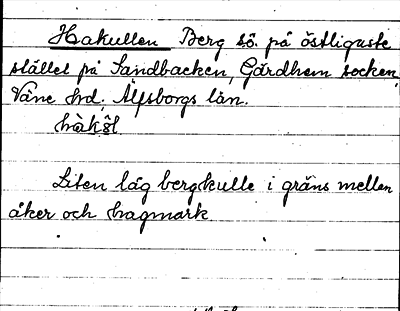 Hakullen Berg sö. på östligaste
stället på Sandbacken, Gärdhem socken,
Väne hd, Älfsborgs län.
hàkŝl
Liten låg bergkulle i gräns mellan
åker och hagmark.